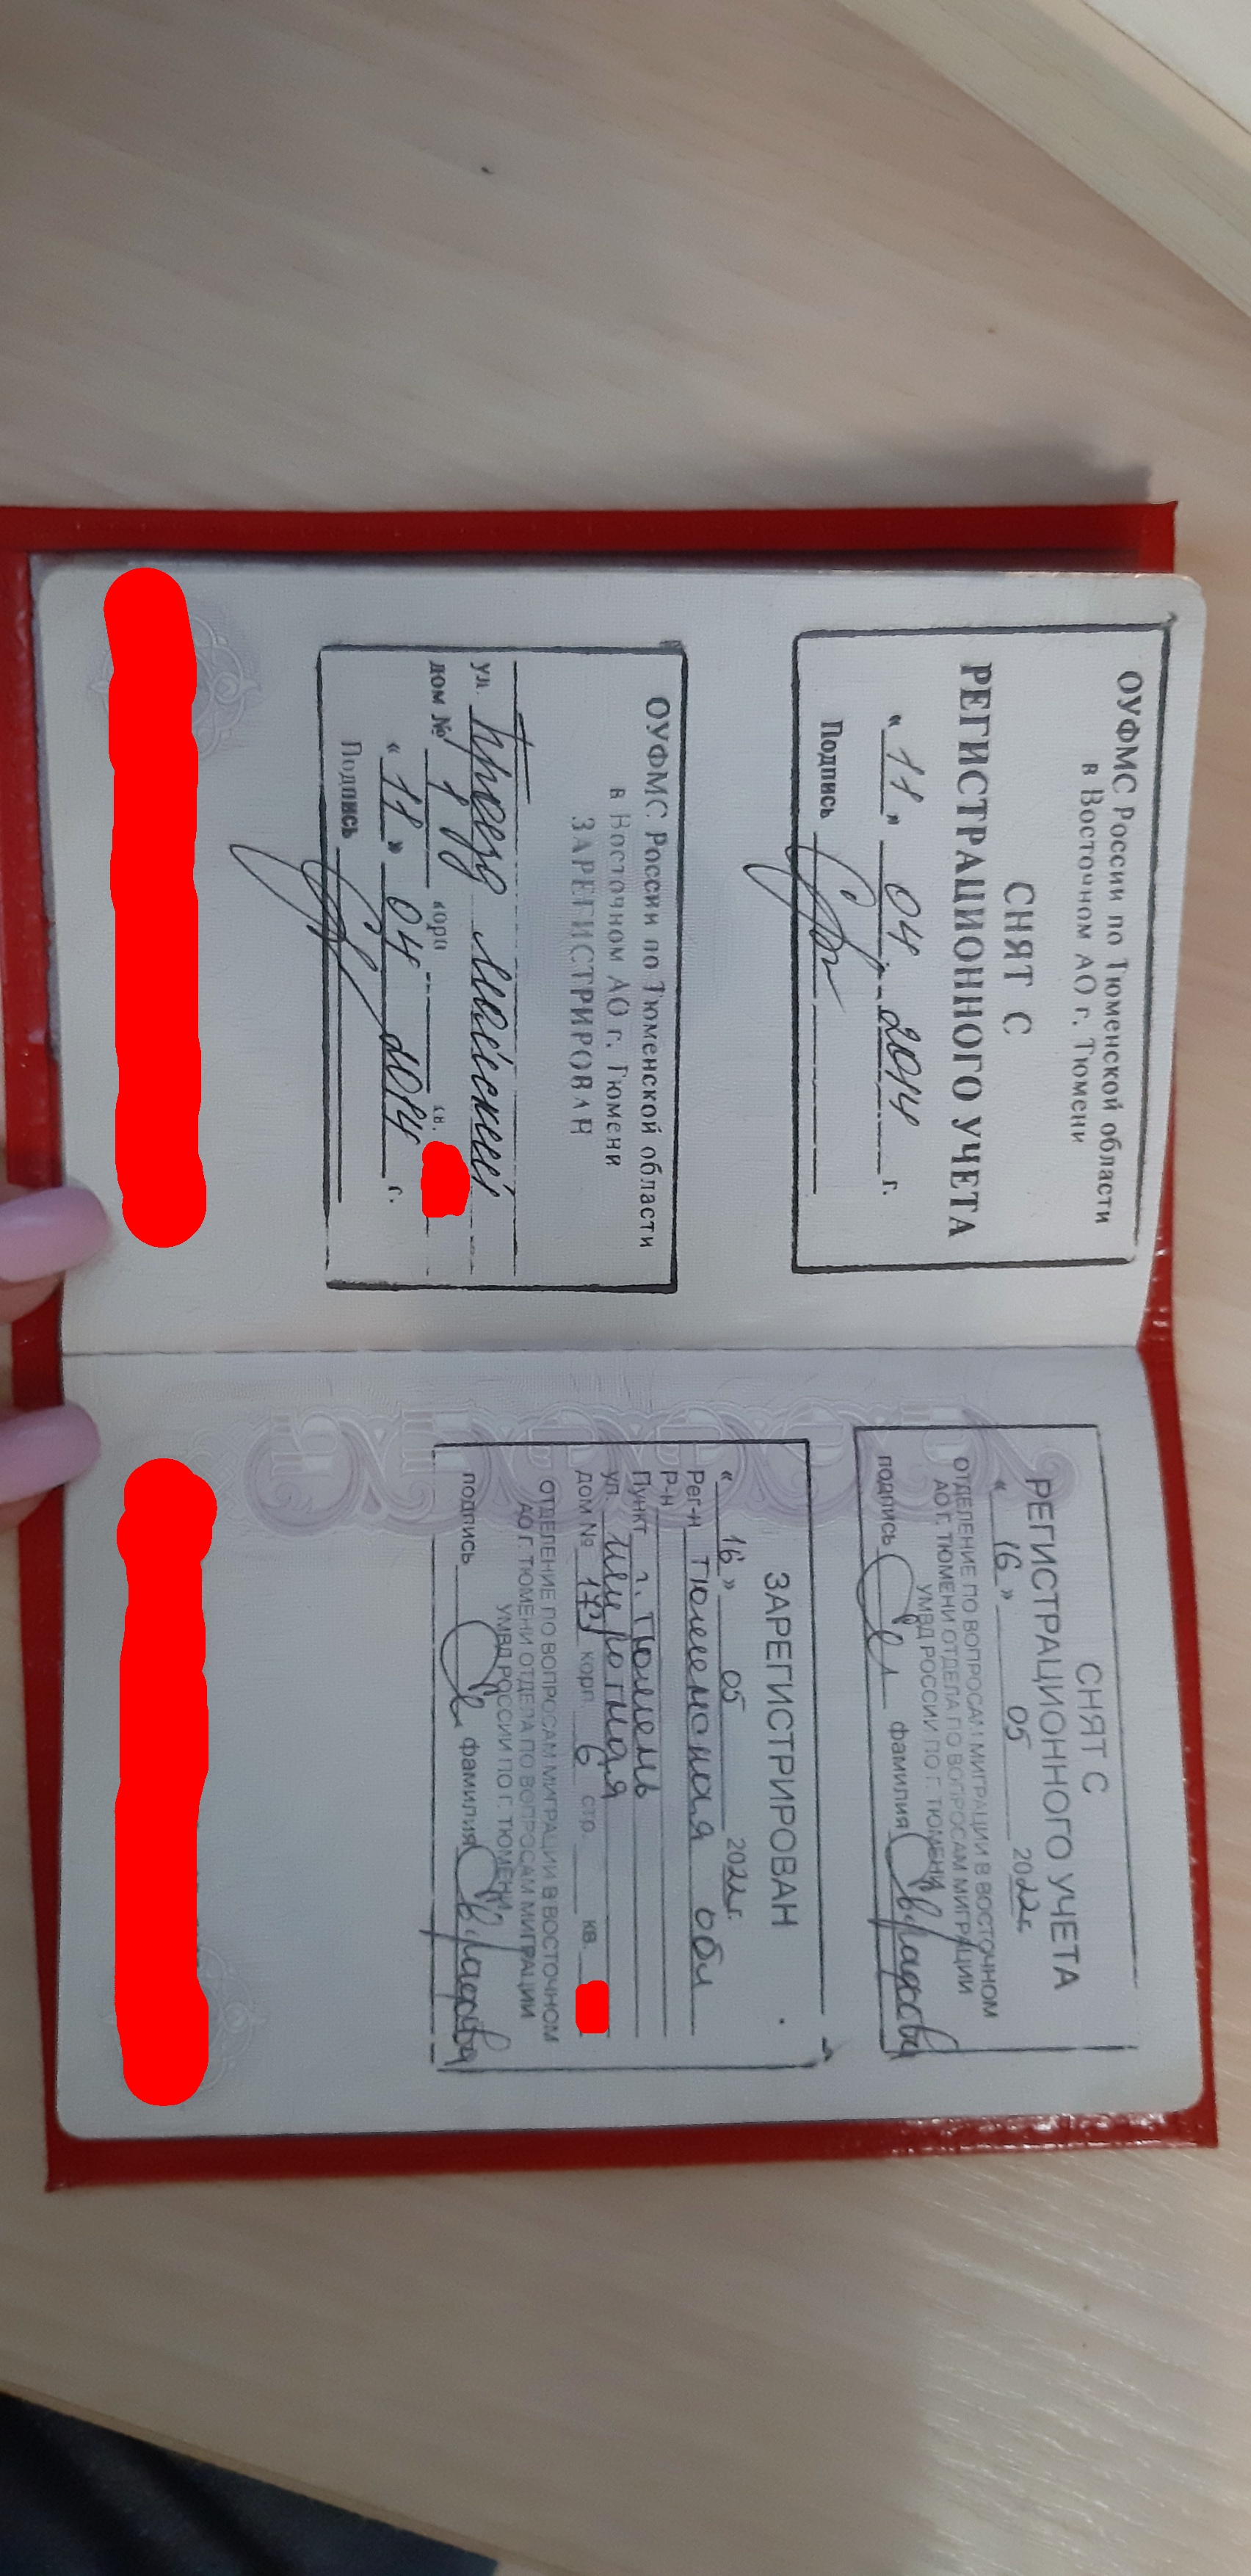 ОУФМС России по Тюменской области
в Восточном АО г. Тюмени
СНЯТ С
РЕГИСТРАЦИОННОГО УЧЕТА
« 11 » 04 2014 г.
Подпись
ОУФМС России по Тюменской области
в Восточном АО г. Тюмени
ЗАРЕГИСТРИРОВАН
ул. проезд Майский
дом № корп кв.
« 11 » 04 2014 г.
Подпись
СНЯТ С
РЕГИСТРАЦИОННОГО УЧЕТА
« 16 » 05 2022 г.
ОТДЕЛЕНИЕ ПО ВОПРОСАМ МИГРАЦИИ В ВОСТОЧНОМ
АО Г. ТЮМЕНИ ОТДЕЛА ПО ВОПРОСАМ МИГРАЦИИ
УМВД РОССИИ ПО Г. ТЮМЕНИ
подпись фамилия
ЗАРЕГИСТРИРОВАН
« 16 » 05 2022 г.
Рег-н Тюменская обл
Р-н
Пункт г. Тюмень
ул. Широтная
дом № 173 корп. 6 стр. кв.
ОТДЕЛЕНИЕ ПО ВОПРОСАМ МИГРАЦИИ В ВОСТОЧНОМ
АО Г. ТЮМЕНИ ОТДЕЛА ПО ВОПРОСАМ МИГРАЦИИ
УМВД РОССИИ ПО Г. ТЮМЕНИ
подпись фамилия